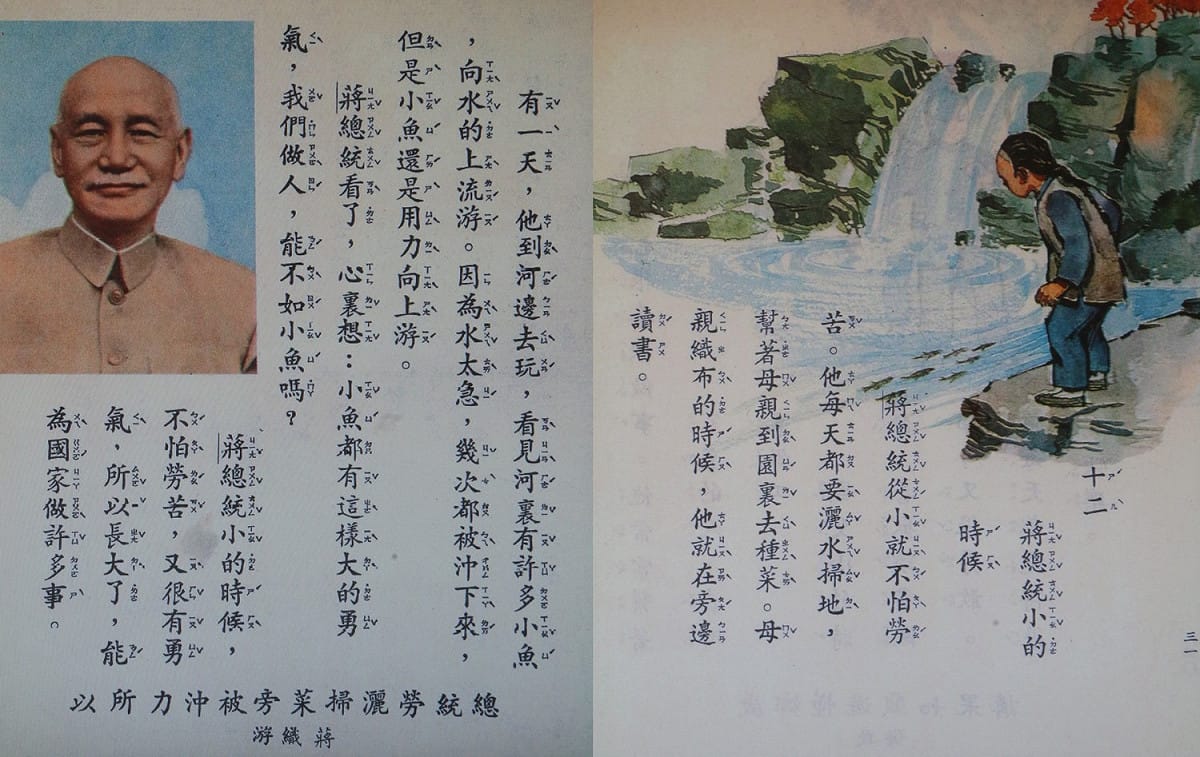 十二
蔣總統小的
時候
蔣總統從小就不怕勞
苦。他每天都要灑水掃地,
幫著母親到園裏去種菜。母
親織布的時候,他就在旁邊
讀書。
三一
有一天,他到河邊去玩,看見河裏有許多小魚
,向水的上流游。因為水太急,幾次都被沖下來,
但是小魚還是用力向上游。
蔣總統看了,心裏想:小魚都有這樣大的勇
氣,我們做人,能不如小魚嗎?
蔣總統小的時候,
不怕勞苦,又很有勇
氣,所以長大了,能
為國家做許多事。
總統勞灑掃菜旁被沖力所以
蔣織游